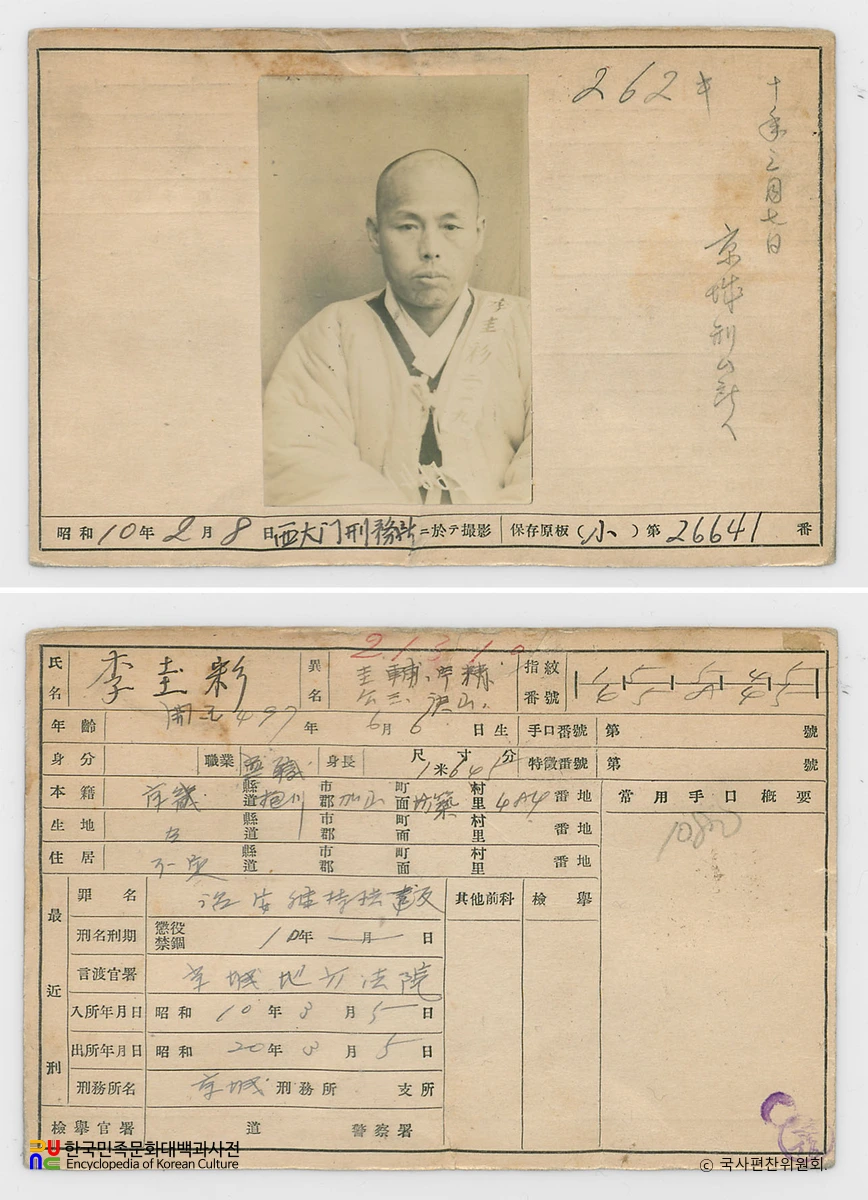 262 キ
十年三月七日
京城刑ム所へ
李圭彩
昭和10年2月8日西大门刑務所ニ於テ撮影 保存原板(小)第26641番
氏名 李圭彩 異名 圭輔、 指紋番號
公三、
年齡 開国497年6月6日生 手口番號 第 號
身分 職業 無職 身長 尺寸分 1米645 特徵番號 第 號
本籍 京畿 縣道 抱川 市郡 加山 町面 坊築 村里 484 番地 常用手口槪要
生地 縣道 市郡 町面 村里 番地
住居 不定 縣道 市郡 町面 村里 番地
最近刑
罪名 治安維持法違反 其他前科 檢擧
刑名刑期 懲役 禁錮 10年 月 日
言渡官署 京城地方法院
入所年月日 昭和10年3月5日
出所年月日 昭和20年3月5日
刑務所名 京城 刑務所 支所
檢擧官署 道 警察署
한국민족문화대백과사전
Encyclopedia of Korean Culture
© 국사편찬위원회.